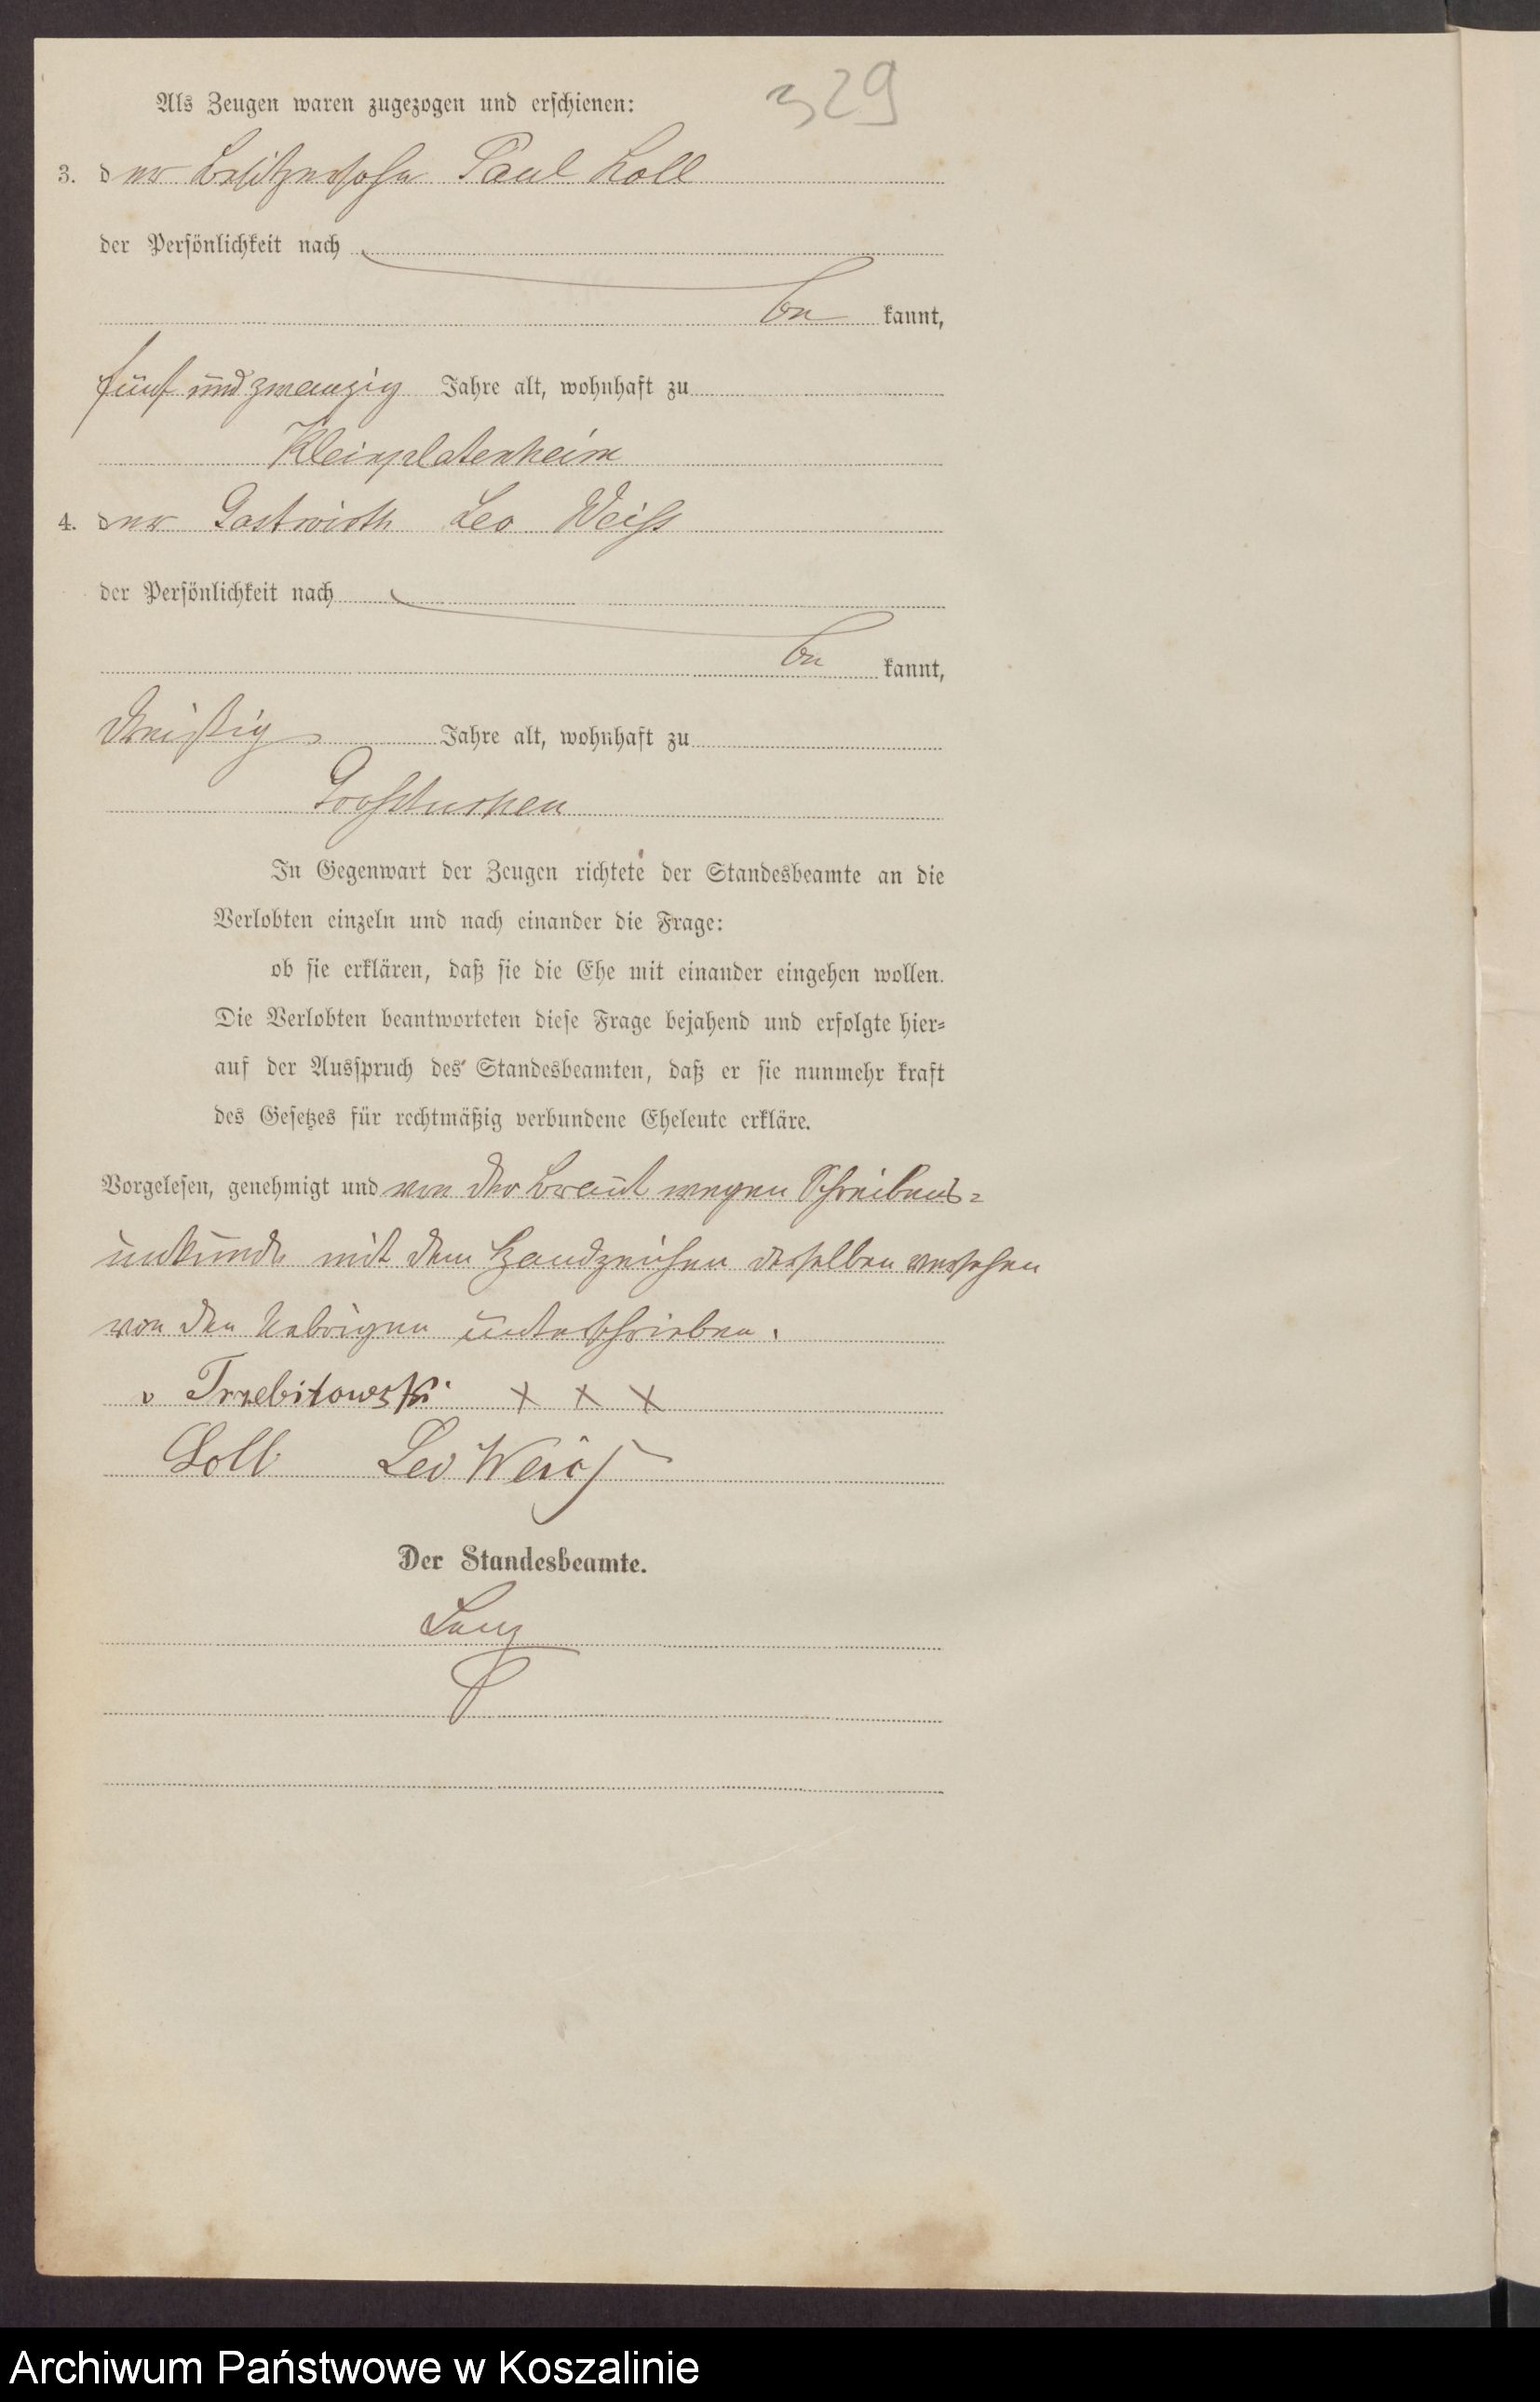 329
Als Zeugen waren zugezogen und erschienen:
3. der Besitzersohn Paul Loll
der Persönlichkeit nach
be kannt,
fünf und zwanzig Jahre alt, wohnhaft zu
Kleinplatenheim
4. der Gastwirth Leo Weiß
der Persönlichkeit nach
be kannt,
dreißig Jahre alt, wohnhaft zu
Großtuchen
In Gegenwart der Zeugen richtete der Standesbeamte an die
Verlobten einzeln und nach einander die Frage:
ob sie erklären, daß sie die Ehe mit einander eingehen wollen.
Die Verlobten beantworteten diese Frage bejahend und erfolgte hier=
auf der Ausspruch des Standesbeamten, daß er sie nunmehr kraft
des Gesetzes für rechtmäßig verbundene Eheleute erkläre.
Vorgelesen, genehmigt und von der Braut wegen Schreibens=
unkunde mit dem Handzeichen derselben versehen
von den Uebrigen unterschrieben.
v Trzebitowski x x x
Loll Leo Weiß
Der Standesbeamte.
Archiwum Państwowe w Koszalinie